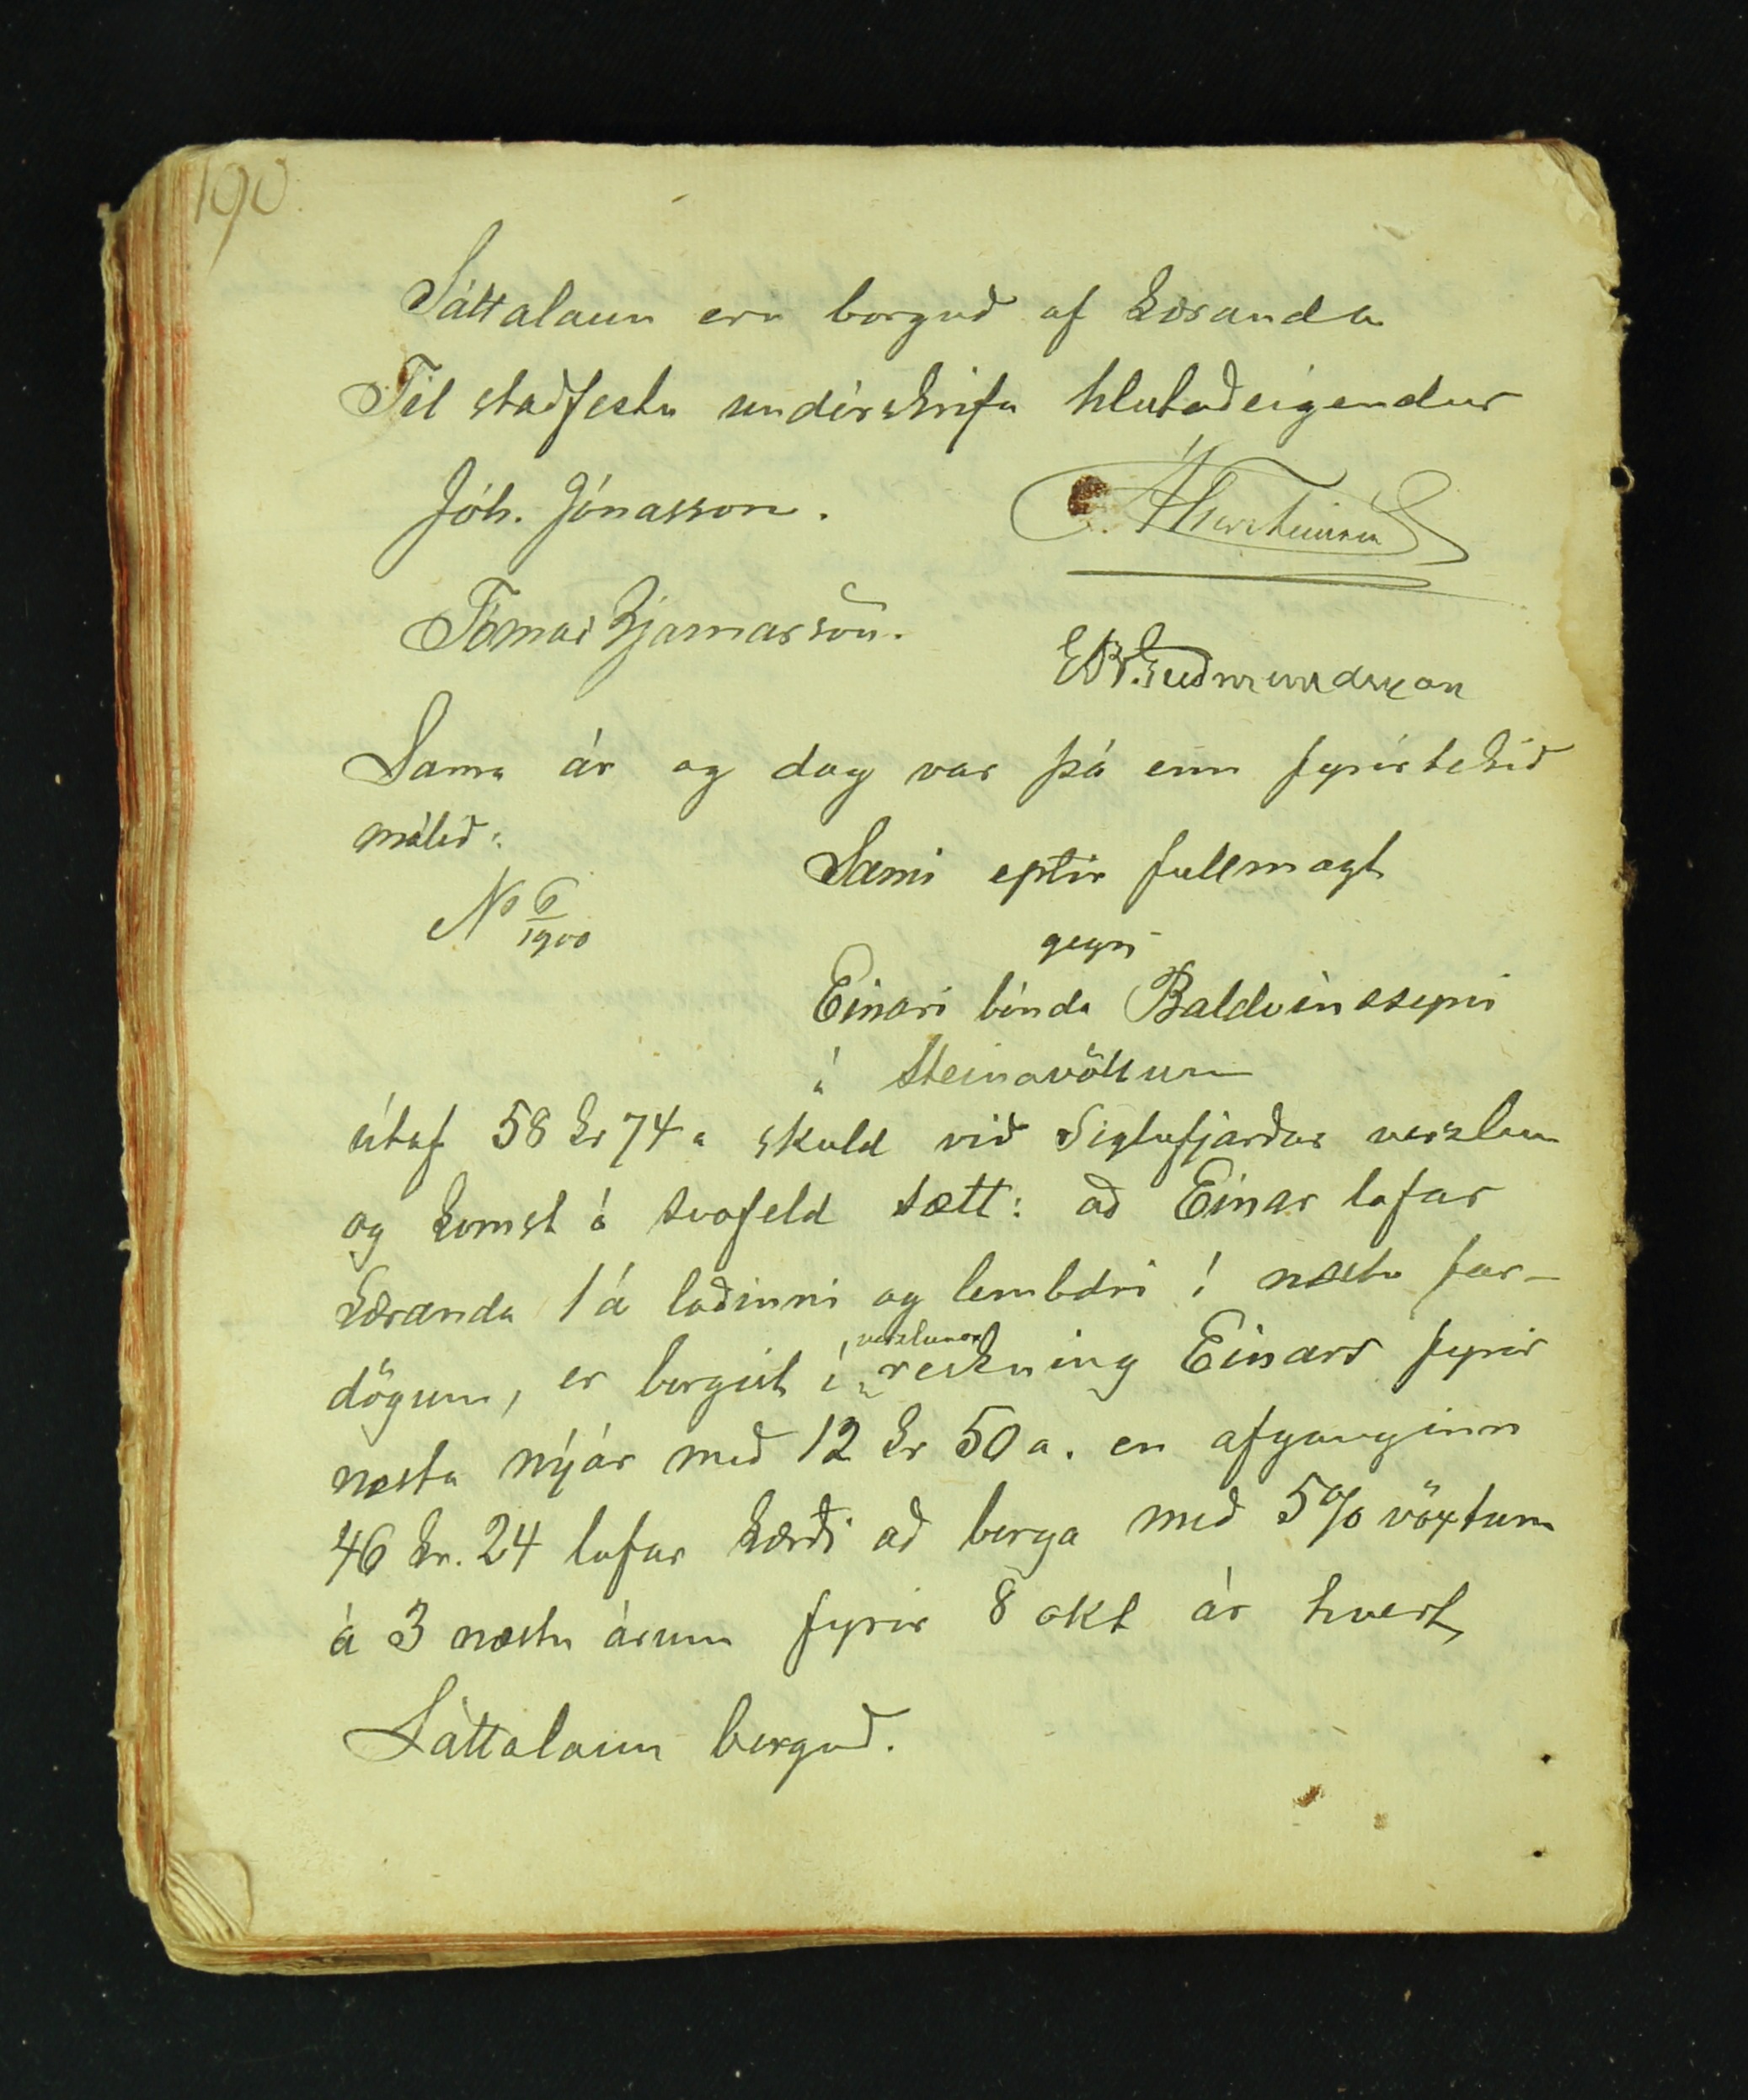 190
Sáttalaun eru borguð af kæranda
Til staðfestu undirskrifa hlutaðeigendur
Jóh. Jónasson.
Tómas Bjarnarson.
EBGuðmundsson
Sama ár og dag var þá enn fyrirtekið
málið:
No 6/1900
Sami eptir fullmagt
gegn
Einari bónda Baldvinssyni
á Steinavöllum
útaf 58 kr 74 a skuld við Siglufjarðar verzlun
og komst á svofeld sætt: að Einar lofar
kæranda 1 á loðinni og lembdri í næstu far-
dögum, er borgist í verzlunar reikning Einars fyrir
næsta nýár með 12 kr 50 a. en afganginn
46 kr. 24 lofar kærði að borga með 5% vöxtum
á 3 næstu árum fyrir 8 okt ár hvert,
Sáttalaun borguð.